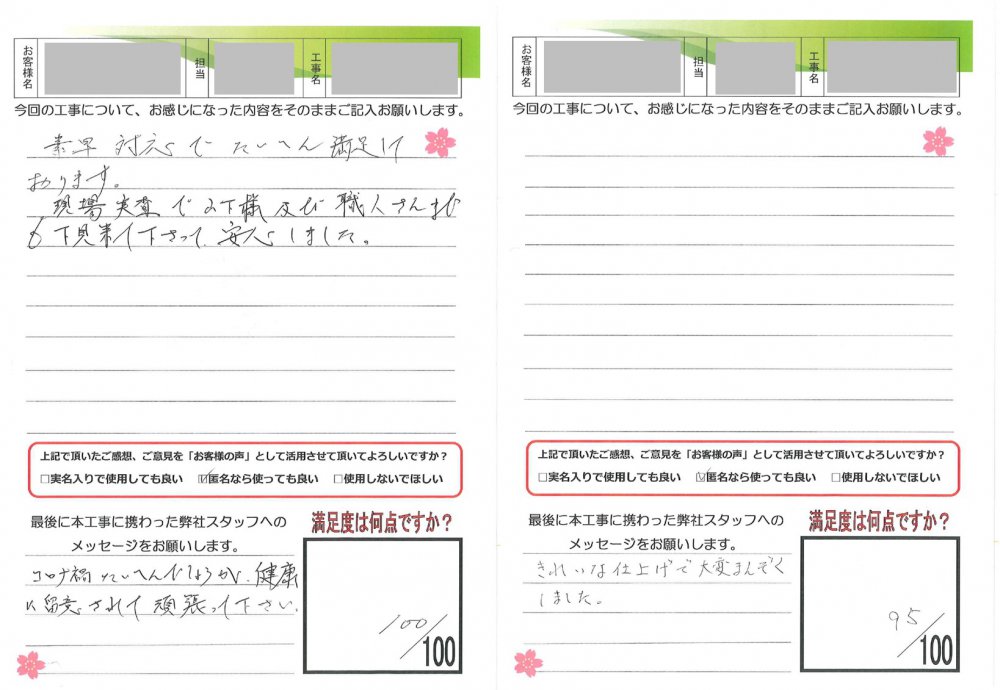 お客様名
担当
工事名
今回の工事について、お感じになった内容をそのままご記入お願いします。
素早 対応で たいへん 満足して
おります。
現場 実査で 様 及び 職人さんまで
も 下見来て下さって、安心しました。
上記で頂いたご感想、ご意見を「お客様の声」として活用させて頂いてよろしいですか？
□実名入りで使用しても良い ☑匿名なら使っても良い □使用しないでほしい
最後に本工事に携わった弊社スタッフへの
メッセージをお願いします。
コロナ禍 たいへんでしょうが、健康
に留意されて 頑張って下さい。
満足度は何点ですか？
100/100
お客様名
担当
工事名
今回の工事について、お感じになった内容をそのままご記入お願いします。
上記で頂いたご感想、ご意見を「お客様の声」として活用させて頂いてよろしいですか？
□実名入りで使用しても良い ☑匿名なら使っても良い □使用しないでほしい
最後に本工事に携わった弊社スタッフへの
メッセージをお願いします。
きれいな仕上げで大変まんぞく
しました。
満足度は何点ですか？
95/100